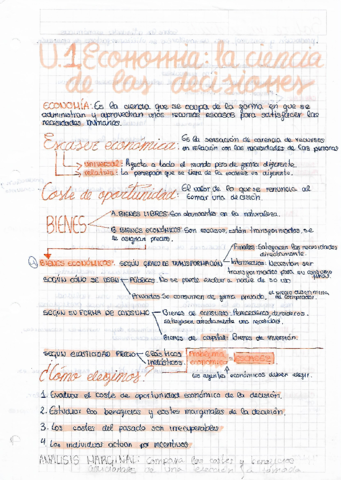 U.1 Economía: la ciencia
de las decisiones
ECONOMÍA: Es la ciencia que se ocupa de la forma en que se
administran y aprovechan unos recursos escasos para satisfacer las
necesidades humanas.
Escasez económica: Es la sensación de carencia de recursos
en relación con las necesidades de las personas
universal: Afecta a todo el mundo pero de forma diferente.
relativa: La percepción que se tiene de la misma es diferente.
Coste de oportunidad: El valor de lo que se renuncia al
tomar una decisión.
BIENES
A. BIENES LIBRES: Son abundantes en la naturaleza.
B. BIENES ECONÓMICOS: Son escasos, están transformados, se
le asignan precio.
Finales: Satisfacen las necesidades
directamente.
BIENES ECONÓMICOS: SEGÚN GRADO DE TRANSFORMACIÓN
Intermedios: Necesitan ser
transformados para su
SEGÚN CÓMO SE USEN
Públicos: No se puede excluir a nadie de su uso
Privados: Se consumen de forma privada,
SEGÚN SU FORMA DE CONSUMO
Bienes de consumo:
satisfacen directamente una necesidad.
Bienes de capital: Bienes de inversión.
SEGÚN ELASTICIDAD PRECIO
ELÁSTICOS
INELÁSTICOS
¿Cómo elegimos?
Los agentes económicos deben elegir.
1. Evaluar el coste de oportunidad económico de la decisión.
2. Estudiar los beneficios y costes marginales de la decisión.
3. Los costes del pasado son irrecuperables
4. Los individuos actúan por incentivos
ANÁLISIS MARGINAL: Compara los costes y
adicionales de una